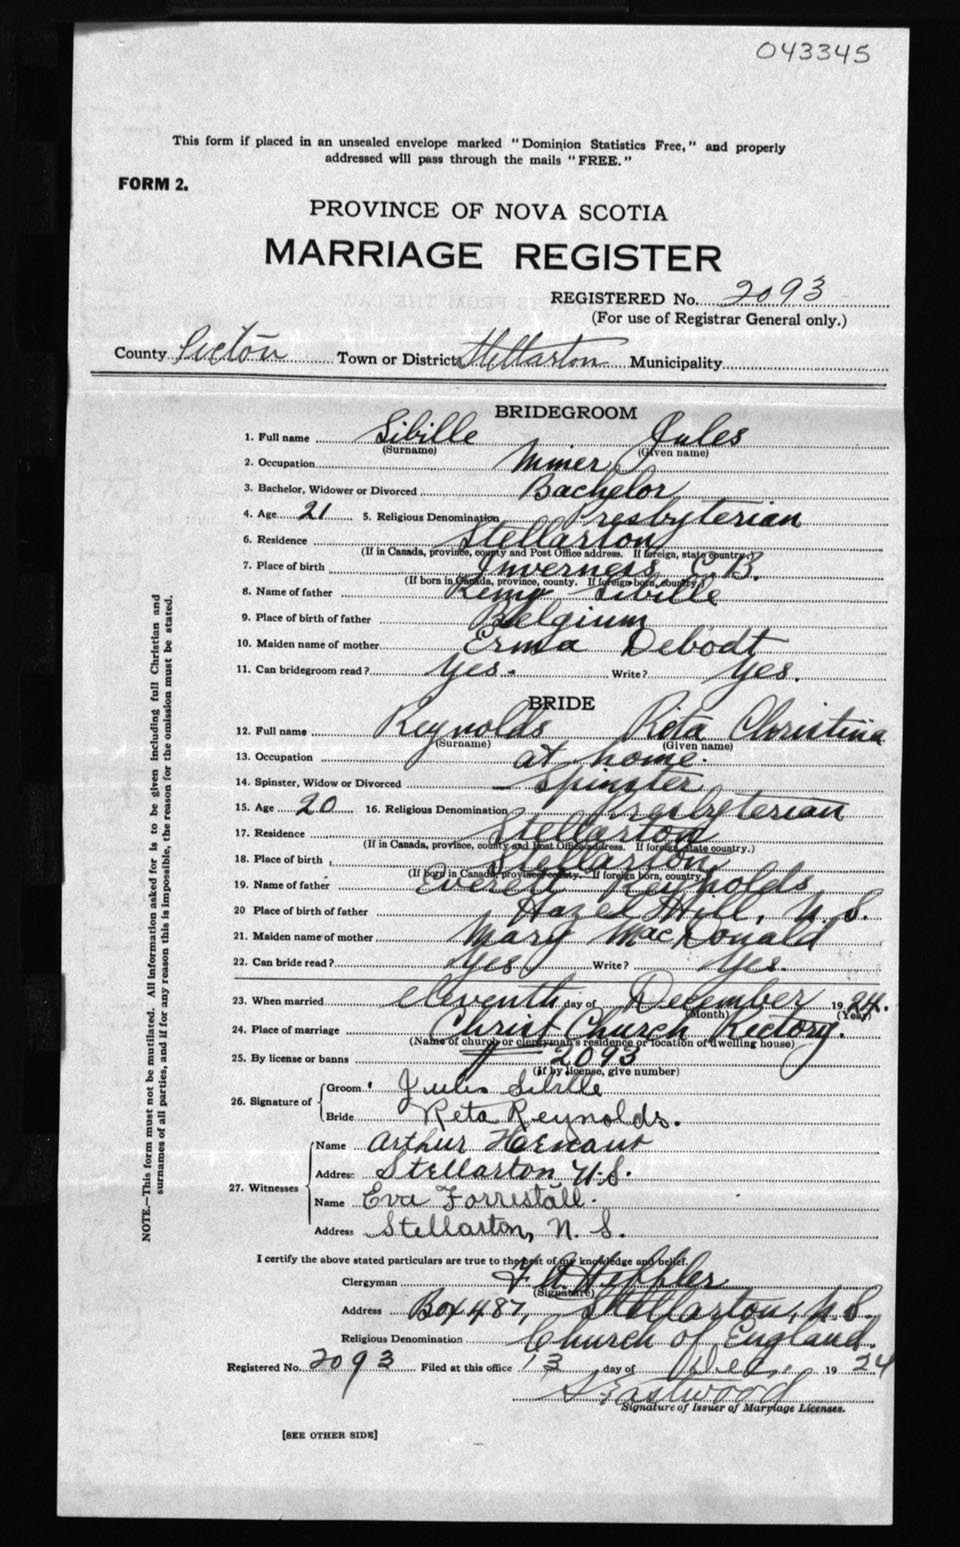 043345
This form if placed in an unsealed envelope marked "Dominion Statistics Free," and properly
addressed will pass through the mails "FREE."
FORM 2.
PROVINCE OF NOVA SCOTIA
MARRIAGE REGISTER
REGISTERED No. 2093
(For use of Registrar General only.)
County Pictou Town or District Stellarton Municipality
BRIDEGROOM
1. Full name Sibille Jules
(Surname) (Given name)
2. Occupation Miner
3. Bachelor, Widower or Divorced Bachelor
4. Age 21 5. Religious Denomination Presbyterian
6. Residence Stellarton
(If in Canada, province, county and Post Office address. If foreign, state country.)
7. Place of birth Inverness C.B.
(If born in Canada, province, county. If foreign born, country.)
8. Name of father Remy Sibille
9. Place of birth of father Belgium
10. Maiden name of mother Erma Debodt
11. Can bridegroom read? Yes. Write? Yes.
BRIDE
12. Full name Reynolds Rita Christina
(Surname) (Given name)
13. Occupation at home.
14. Spinster, Widow or Divorced Spinster
15. Age 20 16. Religious Denomination Presbyterian
17. Residence Stellarton
(If in Canada, province, county and Post Office address. If foreign, state country.)
18. Place of birth Stellarton
(If born in Canada, province, county. If foreign born, country
19. Name of father Everett Reynolds
20 Place of birth of father Hazel Hill, N.S.
21. Maiden name of mother Mary MacDonald
22. Can bride read? Yes Write? Yes.
23. When married eleventh day of December 1924.
(Month) (Year)
24. Place of marriage Christ Church Rectory.
(Name of church or clergyman's residence or location of dwelling house)
25. By license or banns # 2093
(if by license, give number)
26. Signature of Groom Jules Sibille
Bride Reta Reynolds.
27. Witnesses Name Arthur
Address Stellarton N.S.
Name Eva Forrestall.
Address Stellarton, N. S.
I certify the above stated particulars are true to the best of my knowledge and belief.
Clergyman
(Signature)
Address Box 487, Stellarton, N.S.
Religious Denomination Church of England.
Registered No. 2093 Filed at this office 13 day of Dec. 1924
S Eastwood
Signature of Issuer of Marriage Licenses.
[SEE OTHER SIDE]
NOTE.—This form must not be mutilated. All information asked for is to be given including full Christian and
surnames of all parties, and if for any reason this is impossible, the reason for the omission must be stated.